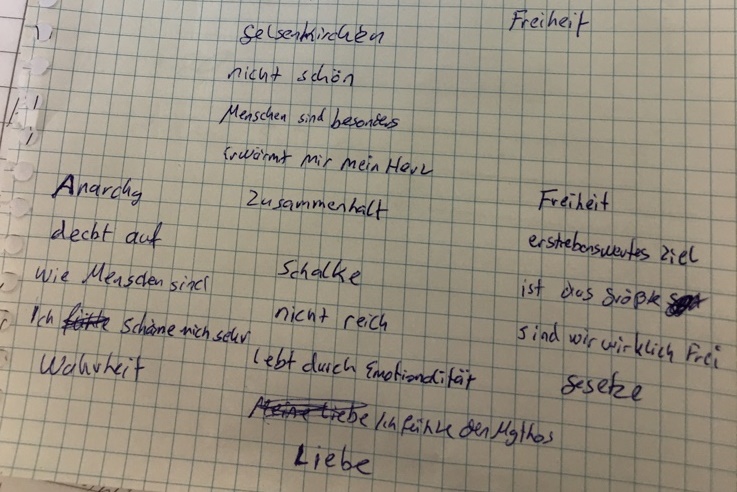 Gelsenkirchen
nicht schön
Menschen sind besonders
Erwärmt mir mein Herz
Zusammenhalt
Freiheit
Anarchy
deckt auf
wie Menschen sind
Ich schäme mich sehr
Wahrheit
Schalke
nicht reich
Lebt durch Emotionalität
Meine Liebe Ich fühle den Mythos
Liebe
Freiheit
erstrebenswertes Ziel
ist das größte
sind wir wirklich Frei
Gesetze